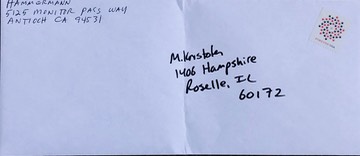 HAMMORMANN
5125 MONITOR PASS WAY
ANTIOCH CA 94531
M. Kristofek
1406 Hampshire
Roselle, IL
60172